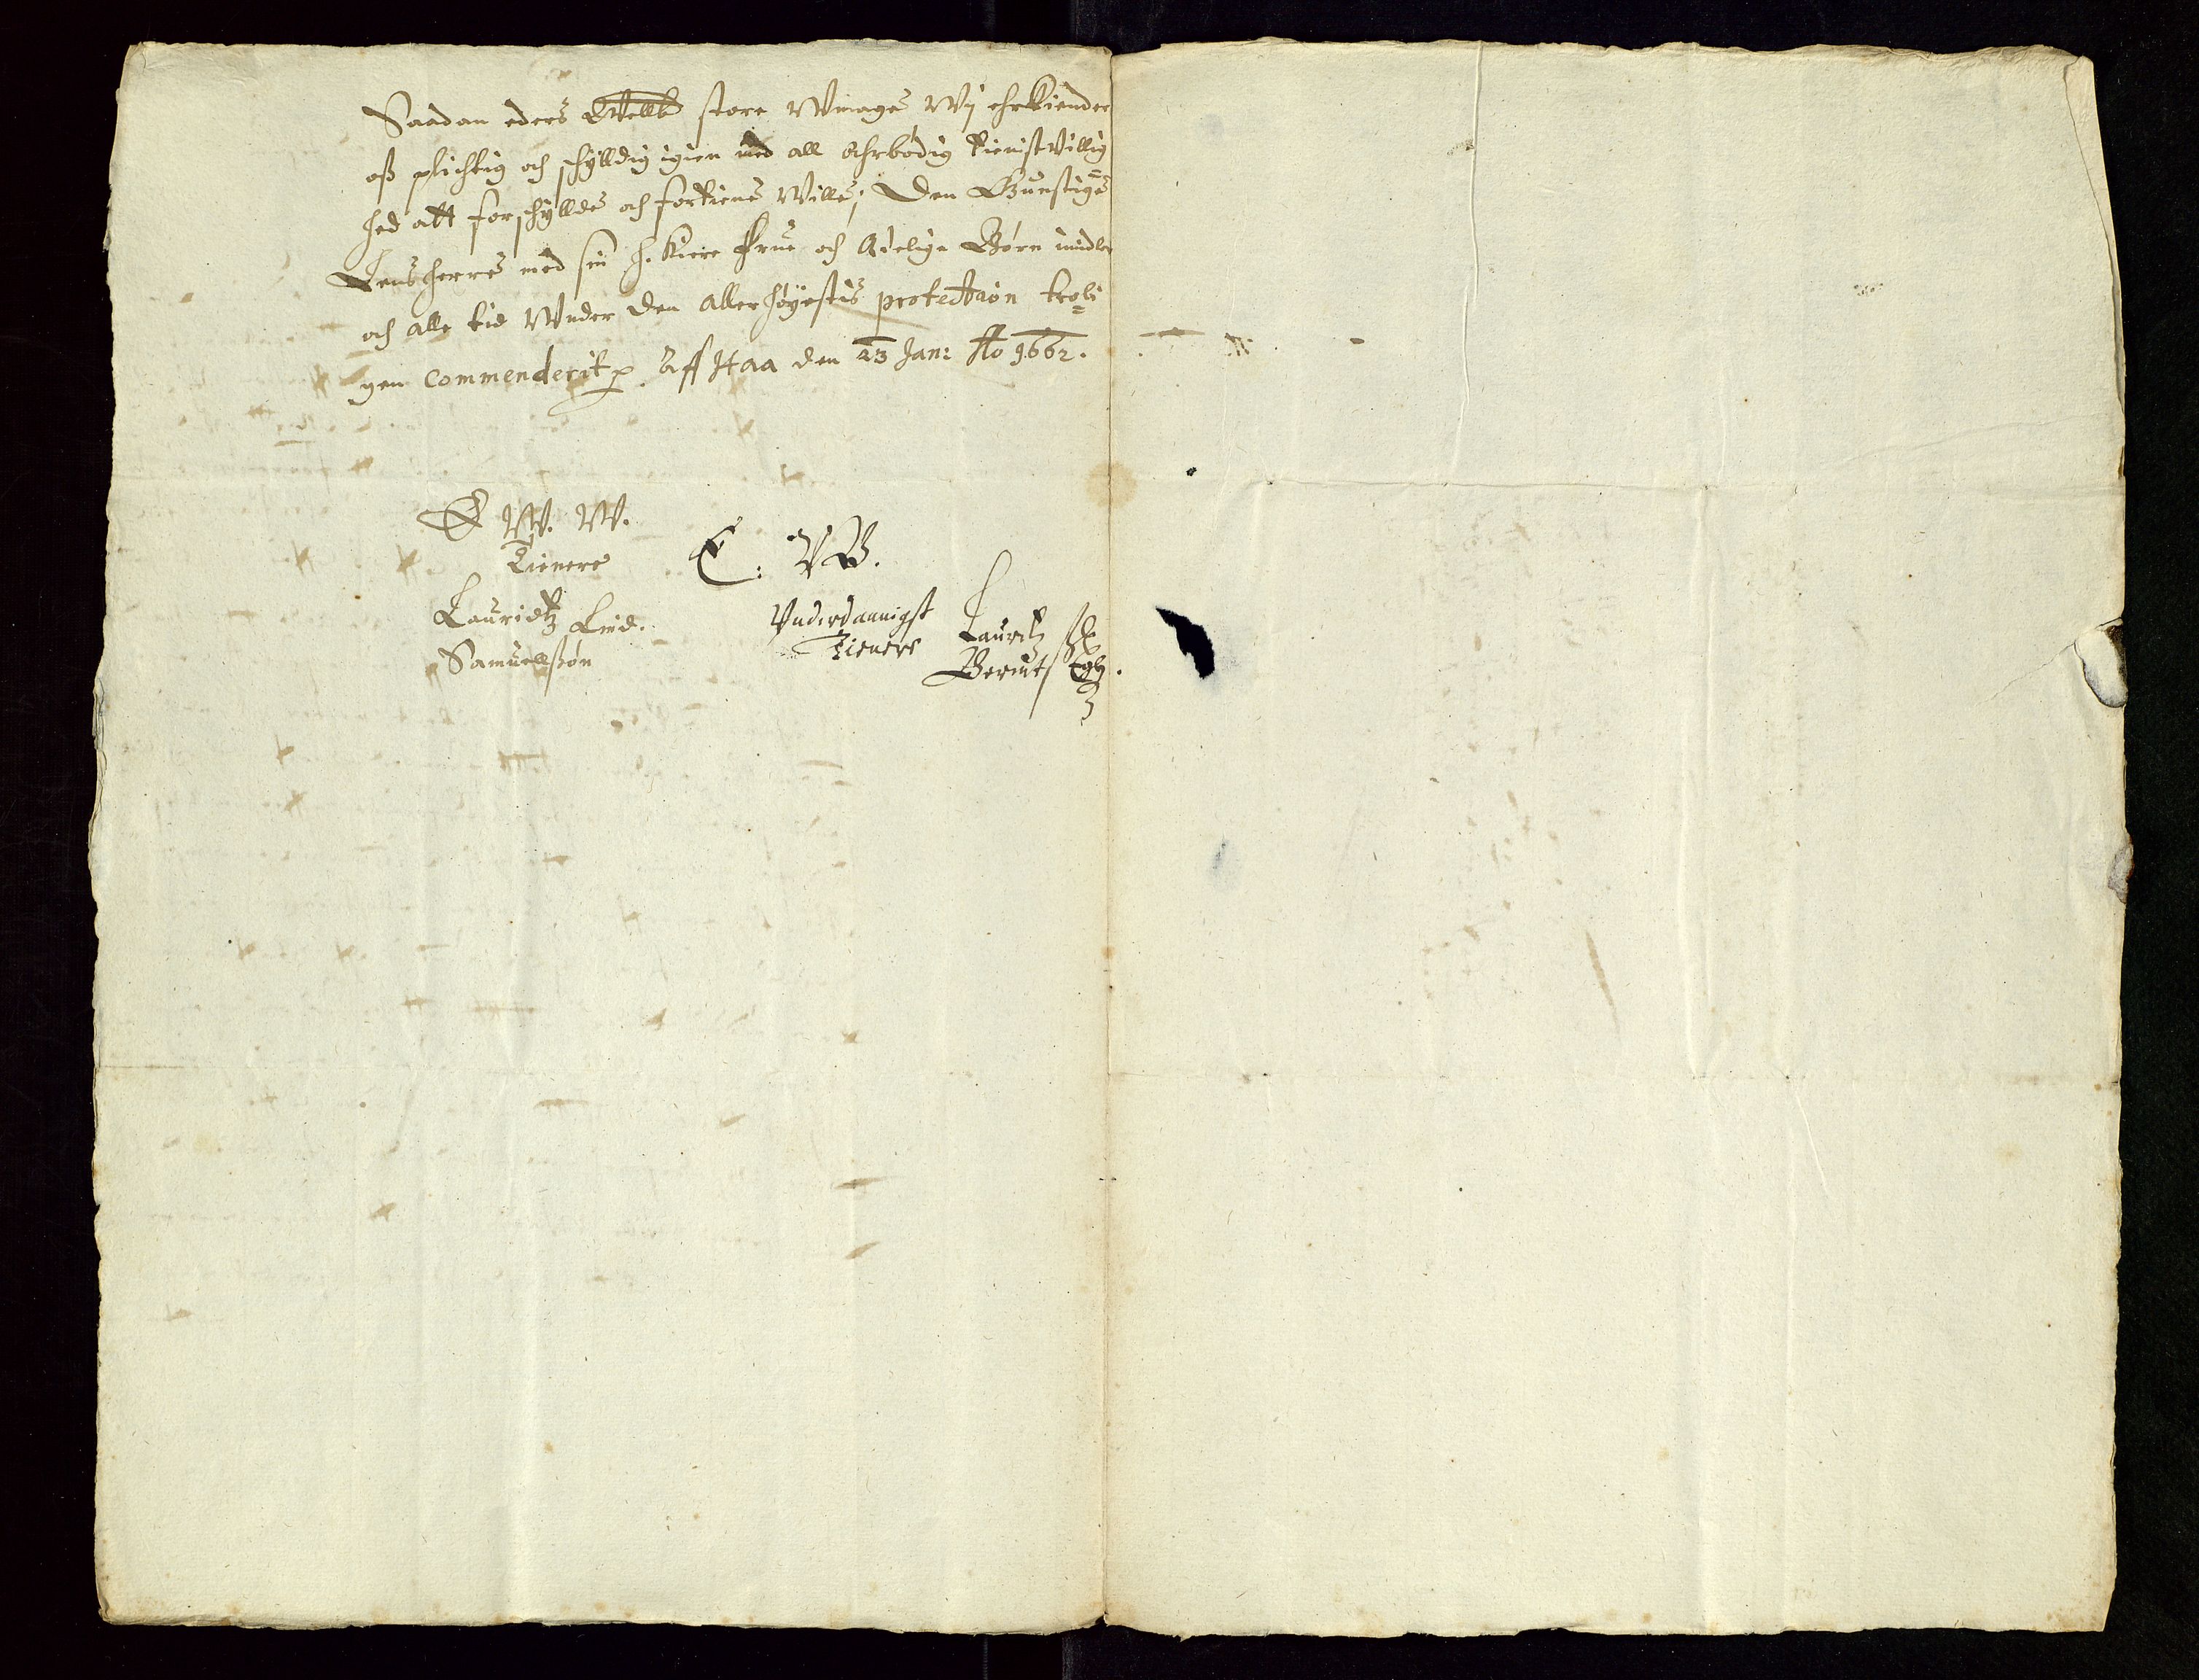 Saadan eders Welb store Wmage, Wij ehrkiender
oß plichtig och schylldig igien med all ehrbødig tienistvillig
hed att forschyllde och fortiene wille; Den Gunstige
Lensherre med sin h. kiere Frue och Adelige Børn imidler
och alle tid Wnder den allerhøyestis protection troli
gen Commenderit p. Aff Haa den 23 Jan: Ao 1662.
E W. W.
Tienere
Lauridtz Lind.
Samuellssøn
E: W.
Vnderdannigst
Tienere
Lauritz
Berntß